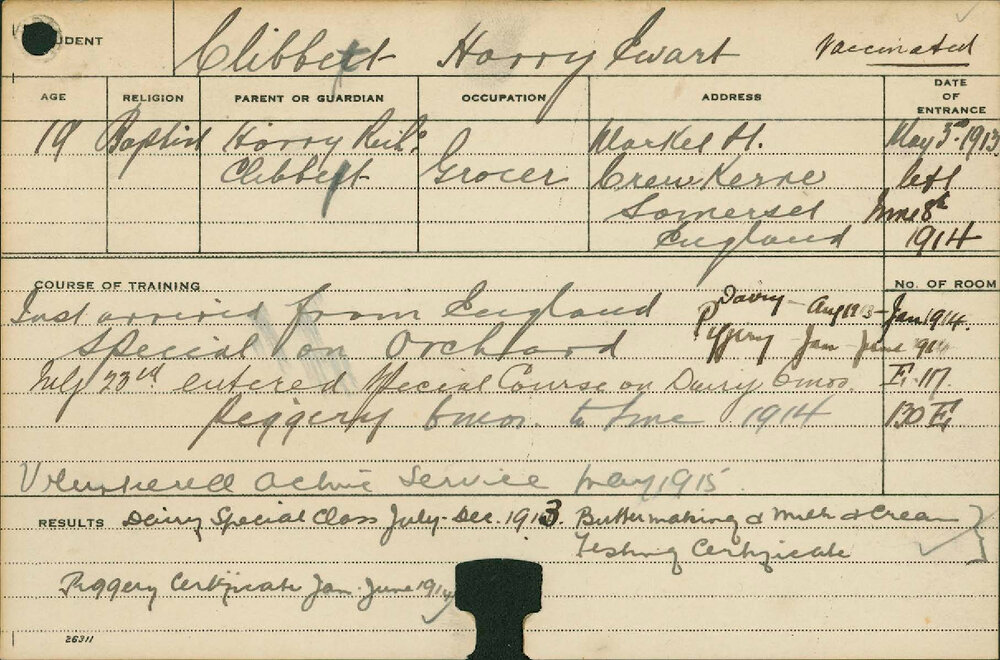 STUDENT Clibbett Harry Ewart Vaccinated
AGE RELIGION PARENT OR GUARDIAN OCCUPATION ADDRESS DATE OF ENTRANCE
19 Baptist Harry Market St. May 5th 1913
Clibbett Grocer Crewkerne left
Somerset June 8th
England 1914
COURSE OF TRAINING No. OF ROOM
Just arrived from England Dairy - Aug 1913 - Jan 1914.
Special on Orchard Piggery Jan - June 1914
July 23rd entered Special Course on Dairy 6mos. E. 117.
Piggery 6mos. to June 1914 130 E
Volunteered Active Service May 1915
RESULTS Dairy Special Class July-Dec. 1913. Buttermaking & Milk & Cream
Testing Certificate
Piggery Certificate Jan-June 1914
26311